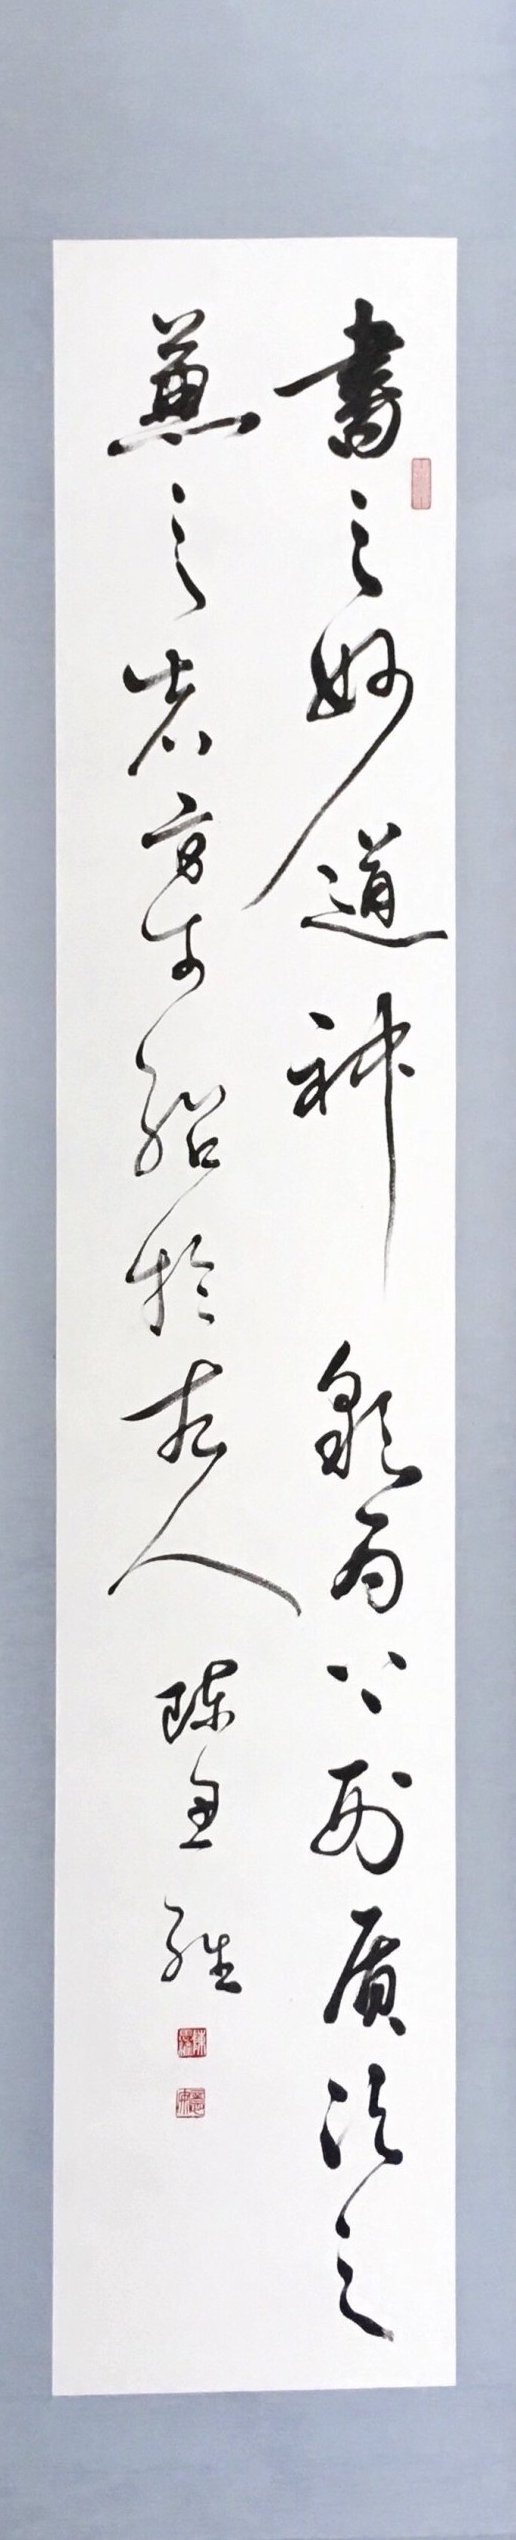 書之妙道神彩為上形質次之
兼之者方可紹於古人
陳墨經